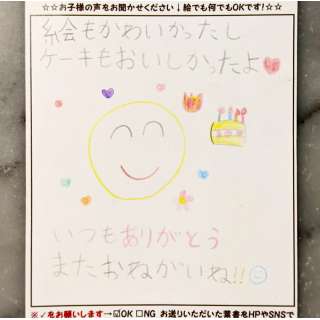 ☆☆お子様の声をお聞かせください↓絵でも何でもOKです!☆☆
絵もかわいかったし
ケーキもおいしかったよ
いつもありがとう
またおねがいね!!
※✓をお願いします→☑OK □NG お送りいただいた葉書をHPやSNSで